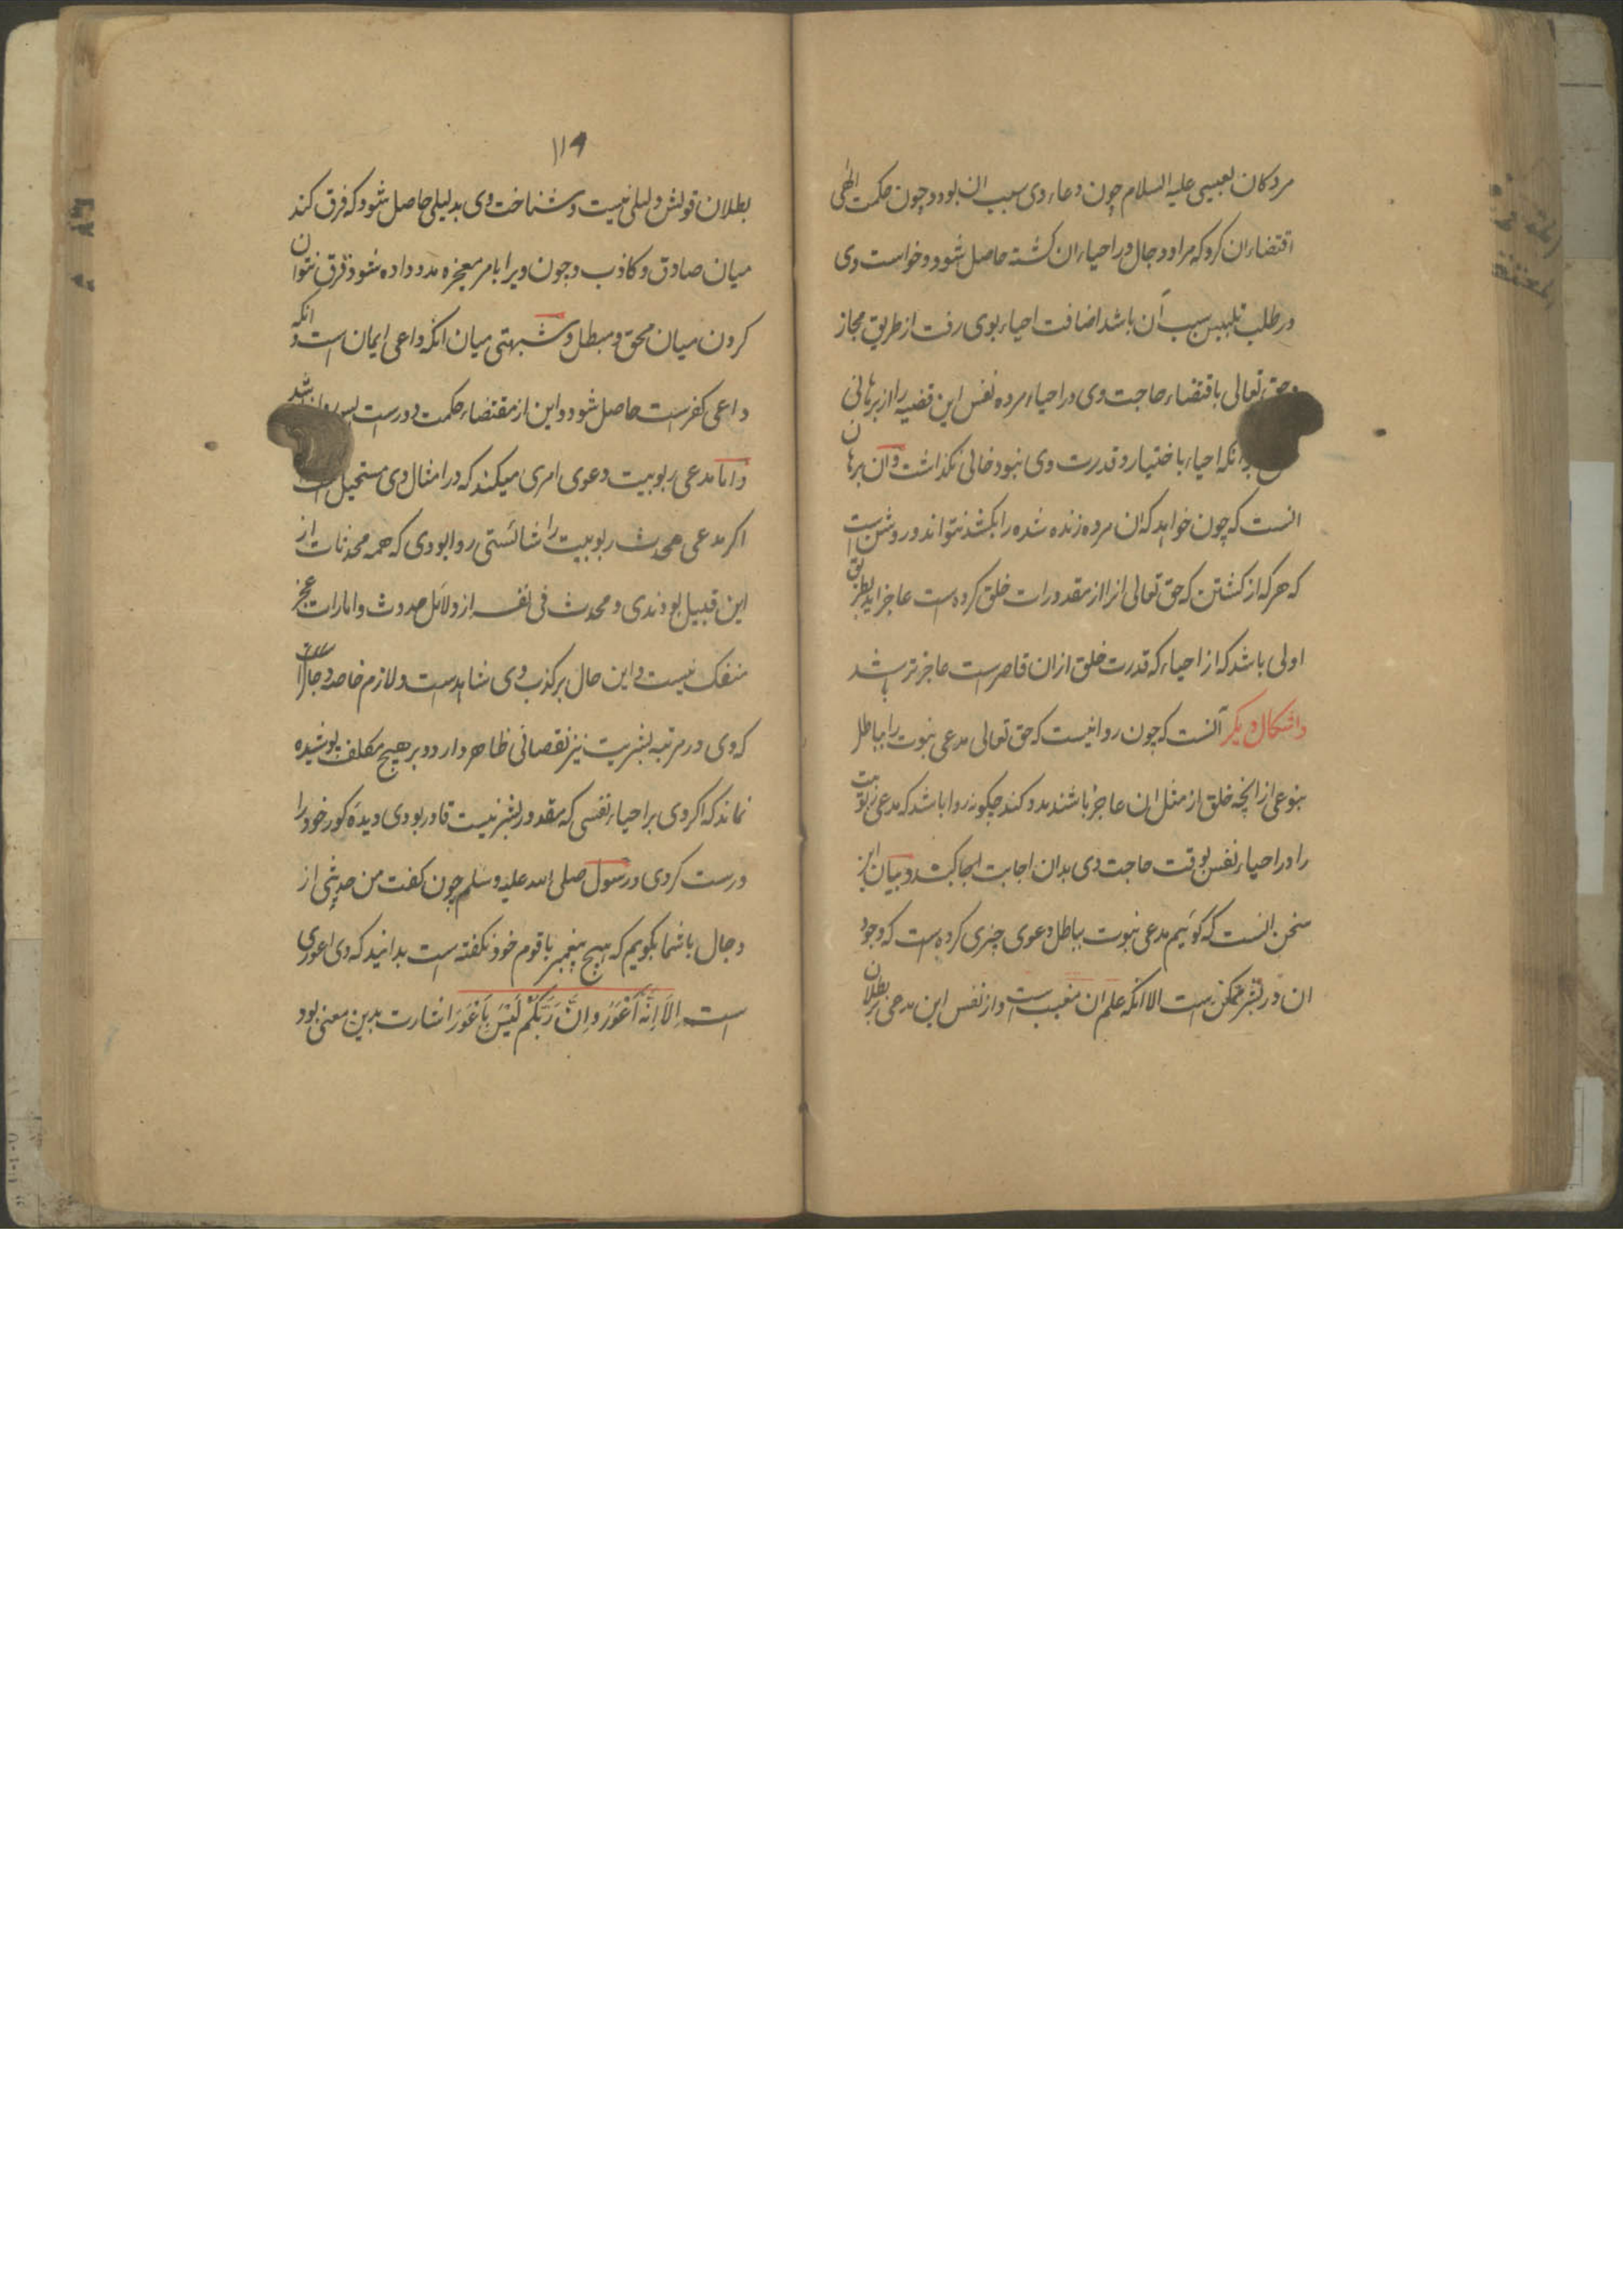 مردکان بعیسی علیه السلام چون دعاء وی سبب ان بود و چون حکمت الهی
اقتضاء ان کرد که مراد دجال در احیاء ان کشته حاصل شود و خواست وی
در طلب تلبیس سبب آن باشد اضافت احیاء بوی رفت از طریق مجاز
و حق تعالی باقتضاء حاجت وی در احیاء مرده نفس این قضیه را از برهانی
بر انکه احیاء باختیار و قدرت وی نبود خالی نکذاشت و ان برهان
انست که چون خواهد که ان مرده زنده شده را بکشد نتواند و روشن است
که هر که از کشتن که حق تعالی انرا از مقدورات خلق کرده است عاجز اید بطریق
اولی باشد که از احیاء که قدرت خلق از ان قاصرست عاجزتر باشد
و اشکال دیکر آنست که چون روا نیست که حق تعالی مدعی نبوت را بباطل
بنوعی از انچه خلق از مثل ان عاجز باشند مدد کند چکونه روا باشد که مدعی ربوبیت
را در احیاء نفس بوقت حاجت وی بدان اجابت کند و بیان این
سخن انست که کوئیم مدعی نبوت بباطل دعوی چیزی کرده است که وجود
ان در بشر ممکن است الا انکه علم ان مغیب است و از نفس این مدعی بر بطلان
۱۱۹
بطلان قولش دلیلی نیست و شناخت وی بدلیلی حاصل شود که فرق کند
میان صادق و کاذب و چون ویرا بامر معجزه مدد داده شود فرق نتوان
کردن میان محق و مبطل و شبهتی میان انکه داعی ایمان است و انکه
داعی کفرست حاصل شود و این از مقتضاء حکمت دورست پس روا نباشد
و اما مدعی ربوبیت دعوی امری میکند که در امثال وی مستحیل است
اکر مدعی محدث ربوبیت را شائستی روا بودی که همه محدثات از
این قبیل بودندی و محدث فی نفسه از دلائل حدوث و امارات عجز
منفک نیست و این حال بر کذب وی شاهدست و لازم خاصه دجال را
که وی در مرتبه بشریت نیز نقصانی ظاهر دارد و بر هیچ مکلف پوشیده
نماند که اکر وی بر احیاء نفسی که مقدور بشر نیست قادر بودی دیده کور خود را
درست کردی و رسول صلی الله علیه و سلم چون کفت من حدیثی از
دجال با شما بکویم که هیچ پیغمبر با قوم خود نکفته است بدانید که وی اعوری
است اِلاَ اِنَّهُ اَعْوَرُ و اِنَّ رَبَّکُمْ لَیْسَ بِاَعْوَرَ اشارت بدین معنی بود